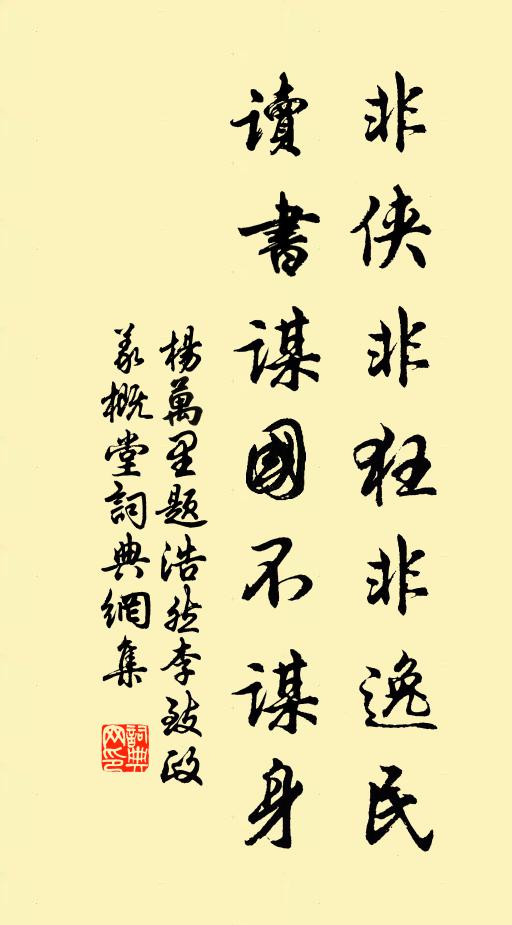 非俠非狂非逸民
讀書謀國不謀身
楊萬里題浩然李致政
義概堂詞典網集
詞典網印